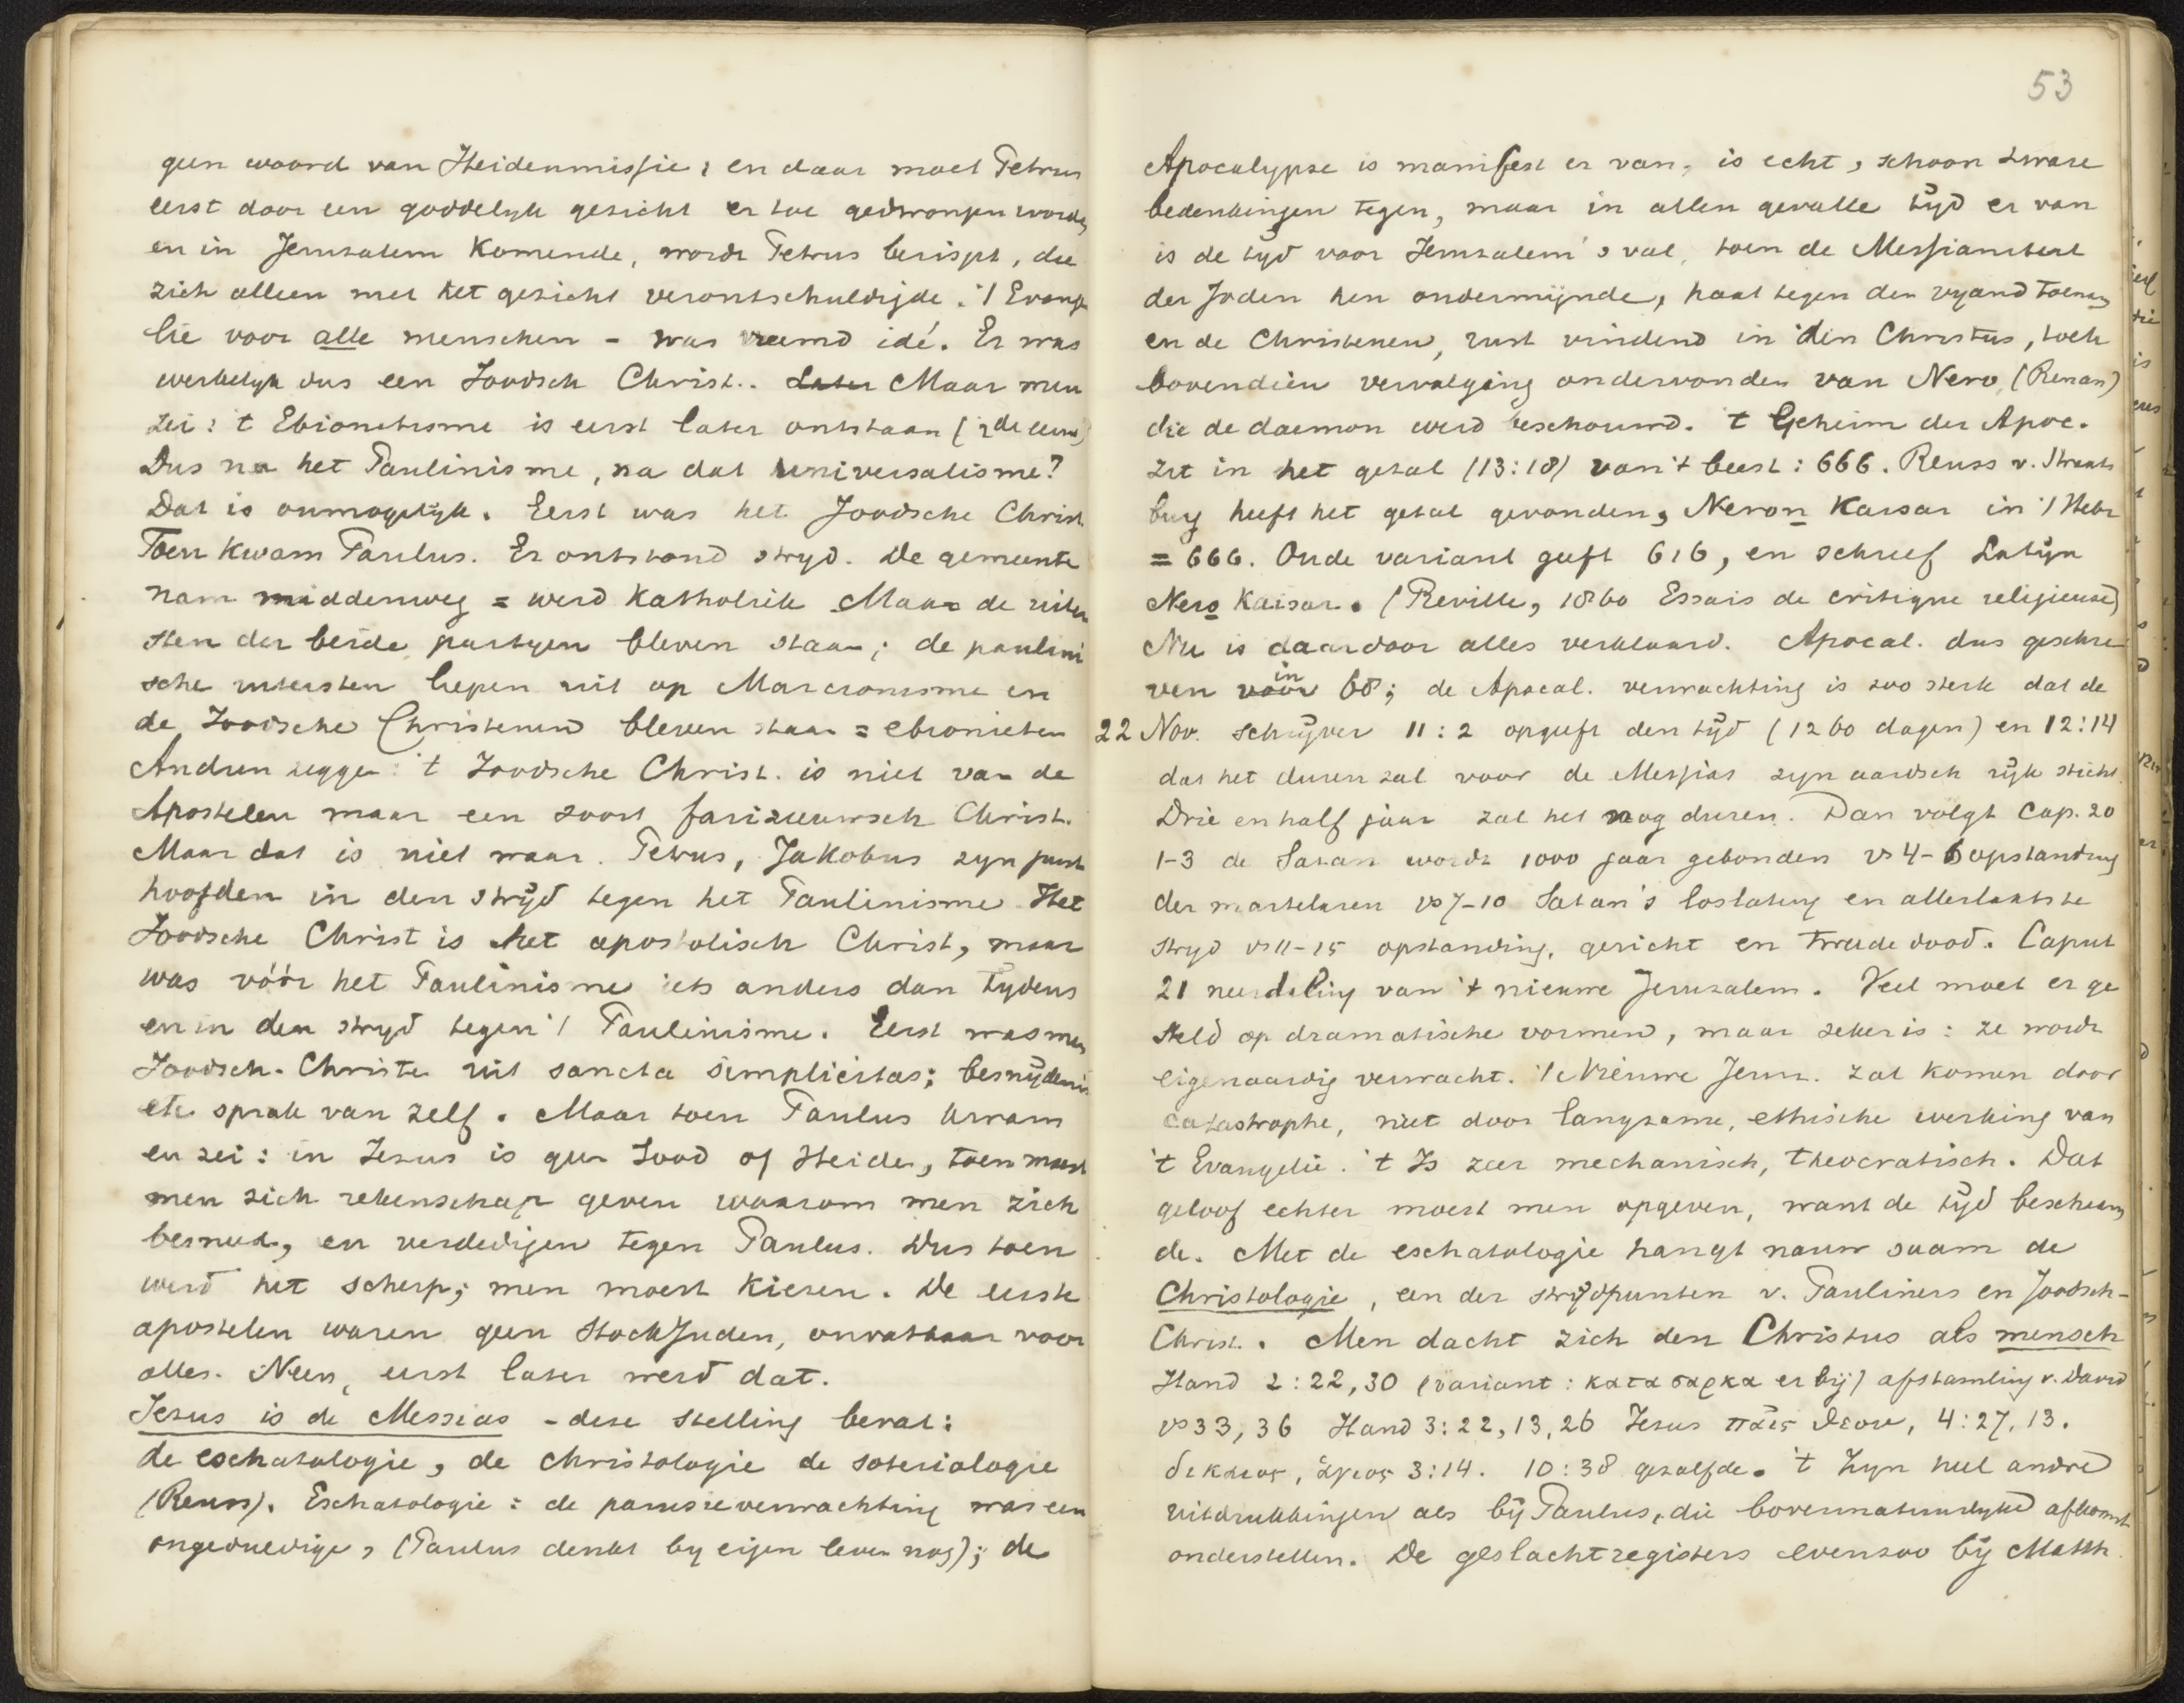 geen woord van Heidenmissie; en daar moet Petrus
eerst door een goddelyk gezicht er toe gedwongen worden
en in Jeruzalem komende, wordt Petrus berispt, die
zich alleen met het gezicht verontschuldigde. 't Evange
lie voor alle menschen - was vreemd idé. Er was
werkelyk dus een Joodsch Christ.. Later Maar men
zei: 't Ebionitisme is eerst later ontstaan (2de eeuw)
Dus na het Paulinisme, na dat universalisme?
Dat is onmogelyk. Eerst was het Joodsche Christ.
Toen kwam Paulus. Er ontstond stryd. De gemeente
nam middenweg = werd Katholiek Maar de uiter
sten der beide partyen bleven staan; de paulini
sche uitersten liepen uit op Marcionisme en
de Joodsche Christenen bleven staan = ebionieten
Andren zeggen: 't Joodsche Christ. is niet van de
Apostelen maar een soort farizeeuwsch Christ.
Maar dat is niet waar. Petrus, Jakobus zyn juist
hoofden in den stryd tegen het Paulinisme. Het
Joodsche Christ is het apostolisch Christ, maar
was vóór het Paulinisme iets anders dan tydens
en in den stryd tegen 't Paulinisme. Eerst was men
Joodsch-Christen uit sancta simplicitas; besnydenis
etc sprak van zelf. Maar toen Paulus kwam
en zei: in Jezus is geen Jood of Heiden, toen moest
men zich rekenschap geven waarom men zich
besneed, en verdedigen tegen Paulus. Dus toen
werd het scherp; men moest kiezen. De eerste
apostelen waren geen StockJuden, onvatbaar voor
alles. Neen, eerst later werd dat.
Jezus is de Messias - deze stelling bevat:
de eschatologie, de christologie de soteriologie
(Reuss). Eschatologie: de parusieverwachting was een
ongeduldige, (Paulus denkt by eigen leven nog); de
53
Apocalypse is manifest er van, is echt, schoon zware
bedenkingen tegen, maar in allen gevalle tyd er van
is de tyd voor Jeruzalem's val, toen de Messiasmtert
der Joden hen ondermynde, haat tegen den vyand toenam
en de Christenen, rust vindend in den Christus, toch
bovendien vervolging ondervonden van Nero (Renan)
die de daemon werd beschouwd. 't Geheim der Apoc.
zit in het getal (13:18) van 't beest: 666. Reuss v. Straats
burg heeft het getal gevonden, Neron Kaisar in 't Hebr
= 666. Oude variant geeft 616, en schreef Latyn
Nero Kaisar. (Reville, 1860 Essais de critique religieuse)
Nu is daardoor alles verklaard. Apocal. dus geschre
ven voor in 68; de Apocal. verwachting is zoo sterk dat de
22 Nov. schryver 11:2 opgeeft den tyd (1260 dagen) en 12:14
dat het duren zal voor de Messias zyn aardsch ryk sticht.
Drie en half jaar zal het nog duren. Dan volgt Cap. 20
1-3 de Satan wordt 1000 jaar gebonden vs 4-6 opstanding
der martelaren vs 7-10 Satan's loslating en allerlaatste
stryd vs 11-15 opstanding, gericht en tweede dood. Caput
21 neerdaling van 't nieuwe Jeruzalem. Veel moet er ge
steld op dramatische vormen, maar zeker is: ze wordt
eigenaardig verwacht. 't Nieuwe Jeruz. zal komen door
catastrophe, niet door langzame, ethische werking van
't Evangelie. 't Is zeer mechanisch, theocratisch. Dat
geloof echter moest men opgeven, want de tyd bescheam
de. Met de eschatologie hangt nauw saam de
Christologie, een der strydpunten v. Pauliners en Joodsch-
Christ. Men dacht zich den Christus als mensch
Hand 2:22,30 (variant: κατα σαρκα er by) afstamling v. David
vs 33, 36 Hand 3:22,13,26 Jesus παις θεου, 4:27,13.
δικαιος, ἁγιος 3:14. 10:38 gezalfde. 't Zyn heel andre
uitdrukkingen als by Paulus, die bovennatuurlyke afkomst
onderstellen. De geslachtregisters evenzoo by Matth.